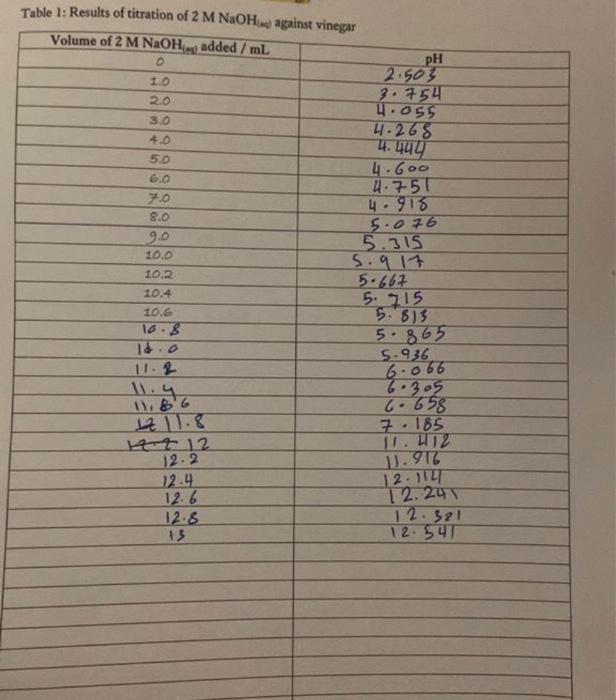 Table 1: Results of titration of 2 M NaOH(aq) against vinegar
Volume of 2 M NaOH(aq) added / mL pH
0 2.503
1.0 3.754
2.0 4.055
3.0 4.268
4.0 4.444
5.0 4.600
6.0 4.751
7.0 4.918
8.0 5.076
9.0 5.315
10.0 5.917
10.2 5.667
10.4 5.715
10.6 5.813
10.8 5.865
11.0 5.936
11.2 6.066
11.4 6.305
11.6 6.658
11.8 7.185
12 11.412
12.2 11.916
12.4 12.114
12.6 12.241
12.8 12.321
13 12.541